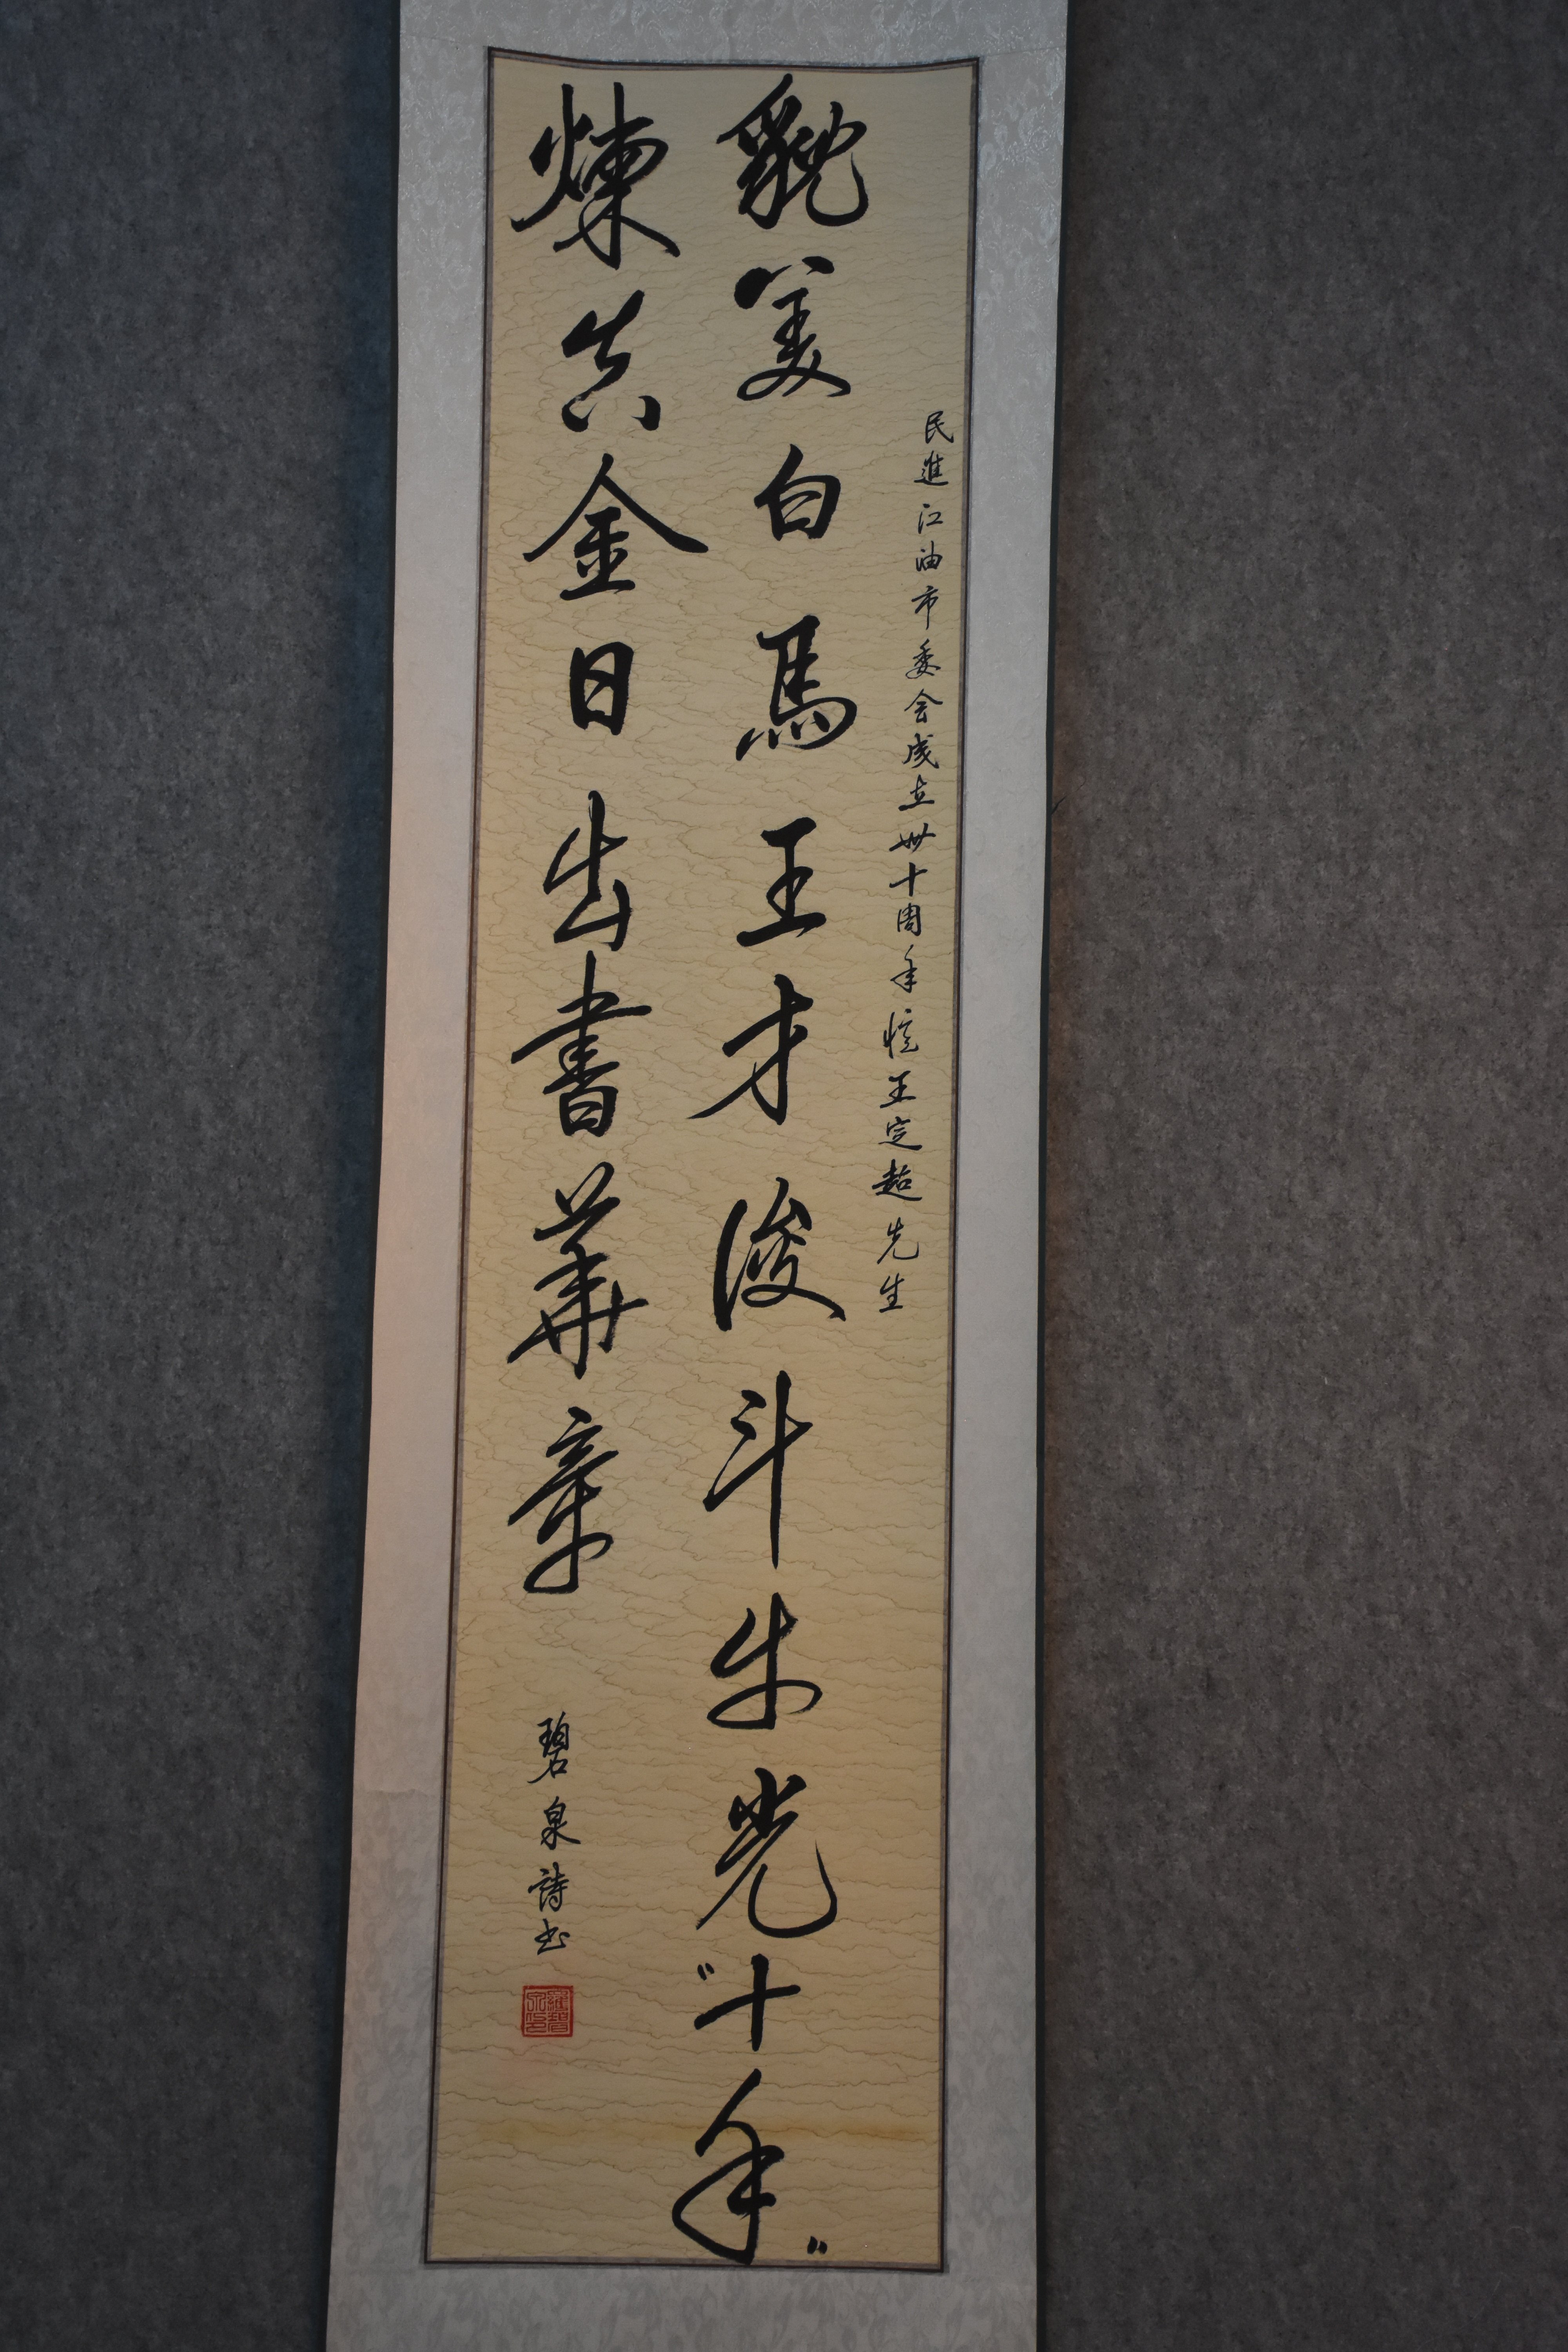 民進江油市委会成立卅十周年憶王定超先生
貌美白馬王才俊斗牛光"十年"
煉真金日出書華章
碧泉詩书